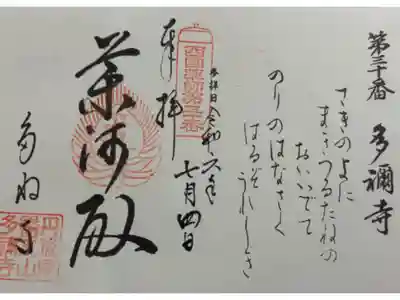 第三十番 多禰寺
さきのよに
まきつるたねの
おいいでて
のりのはなさく
はるぞうれしき
参拝日 令和六年
七月四日
西国薬師第三十番
奉拝
薬師殿
多祢寺